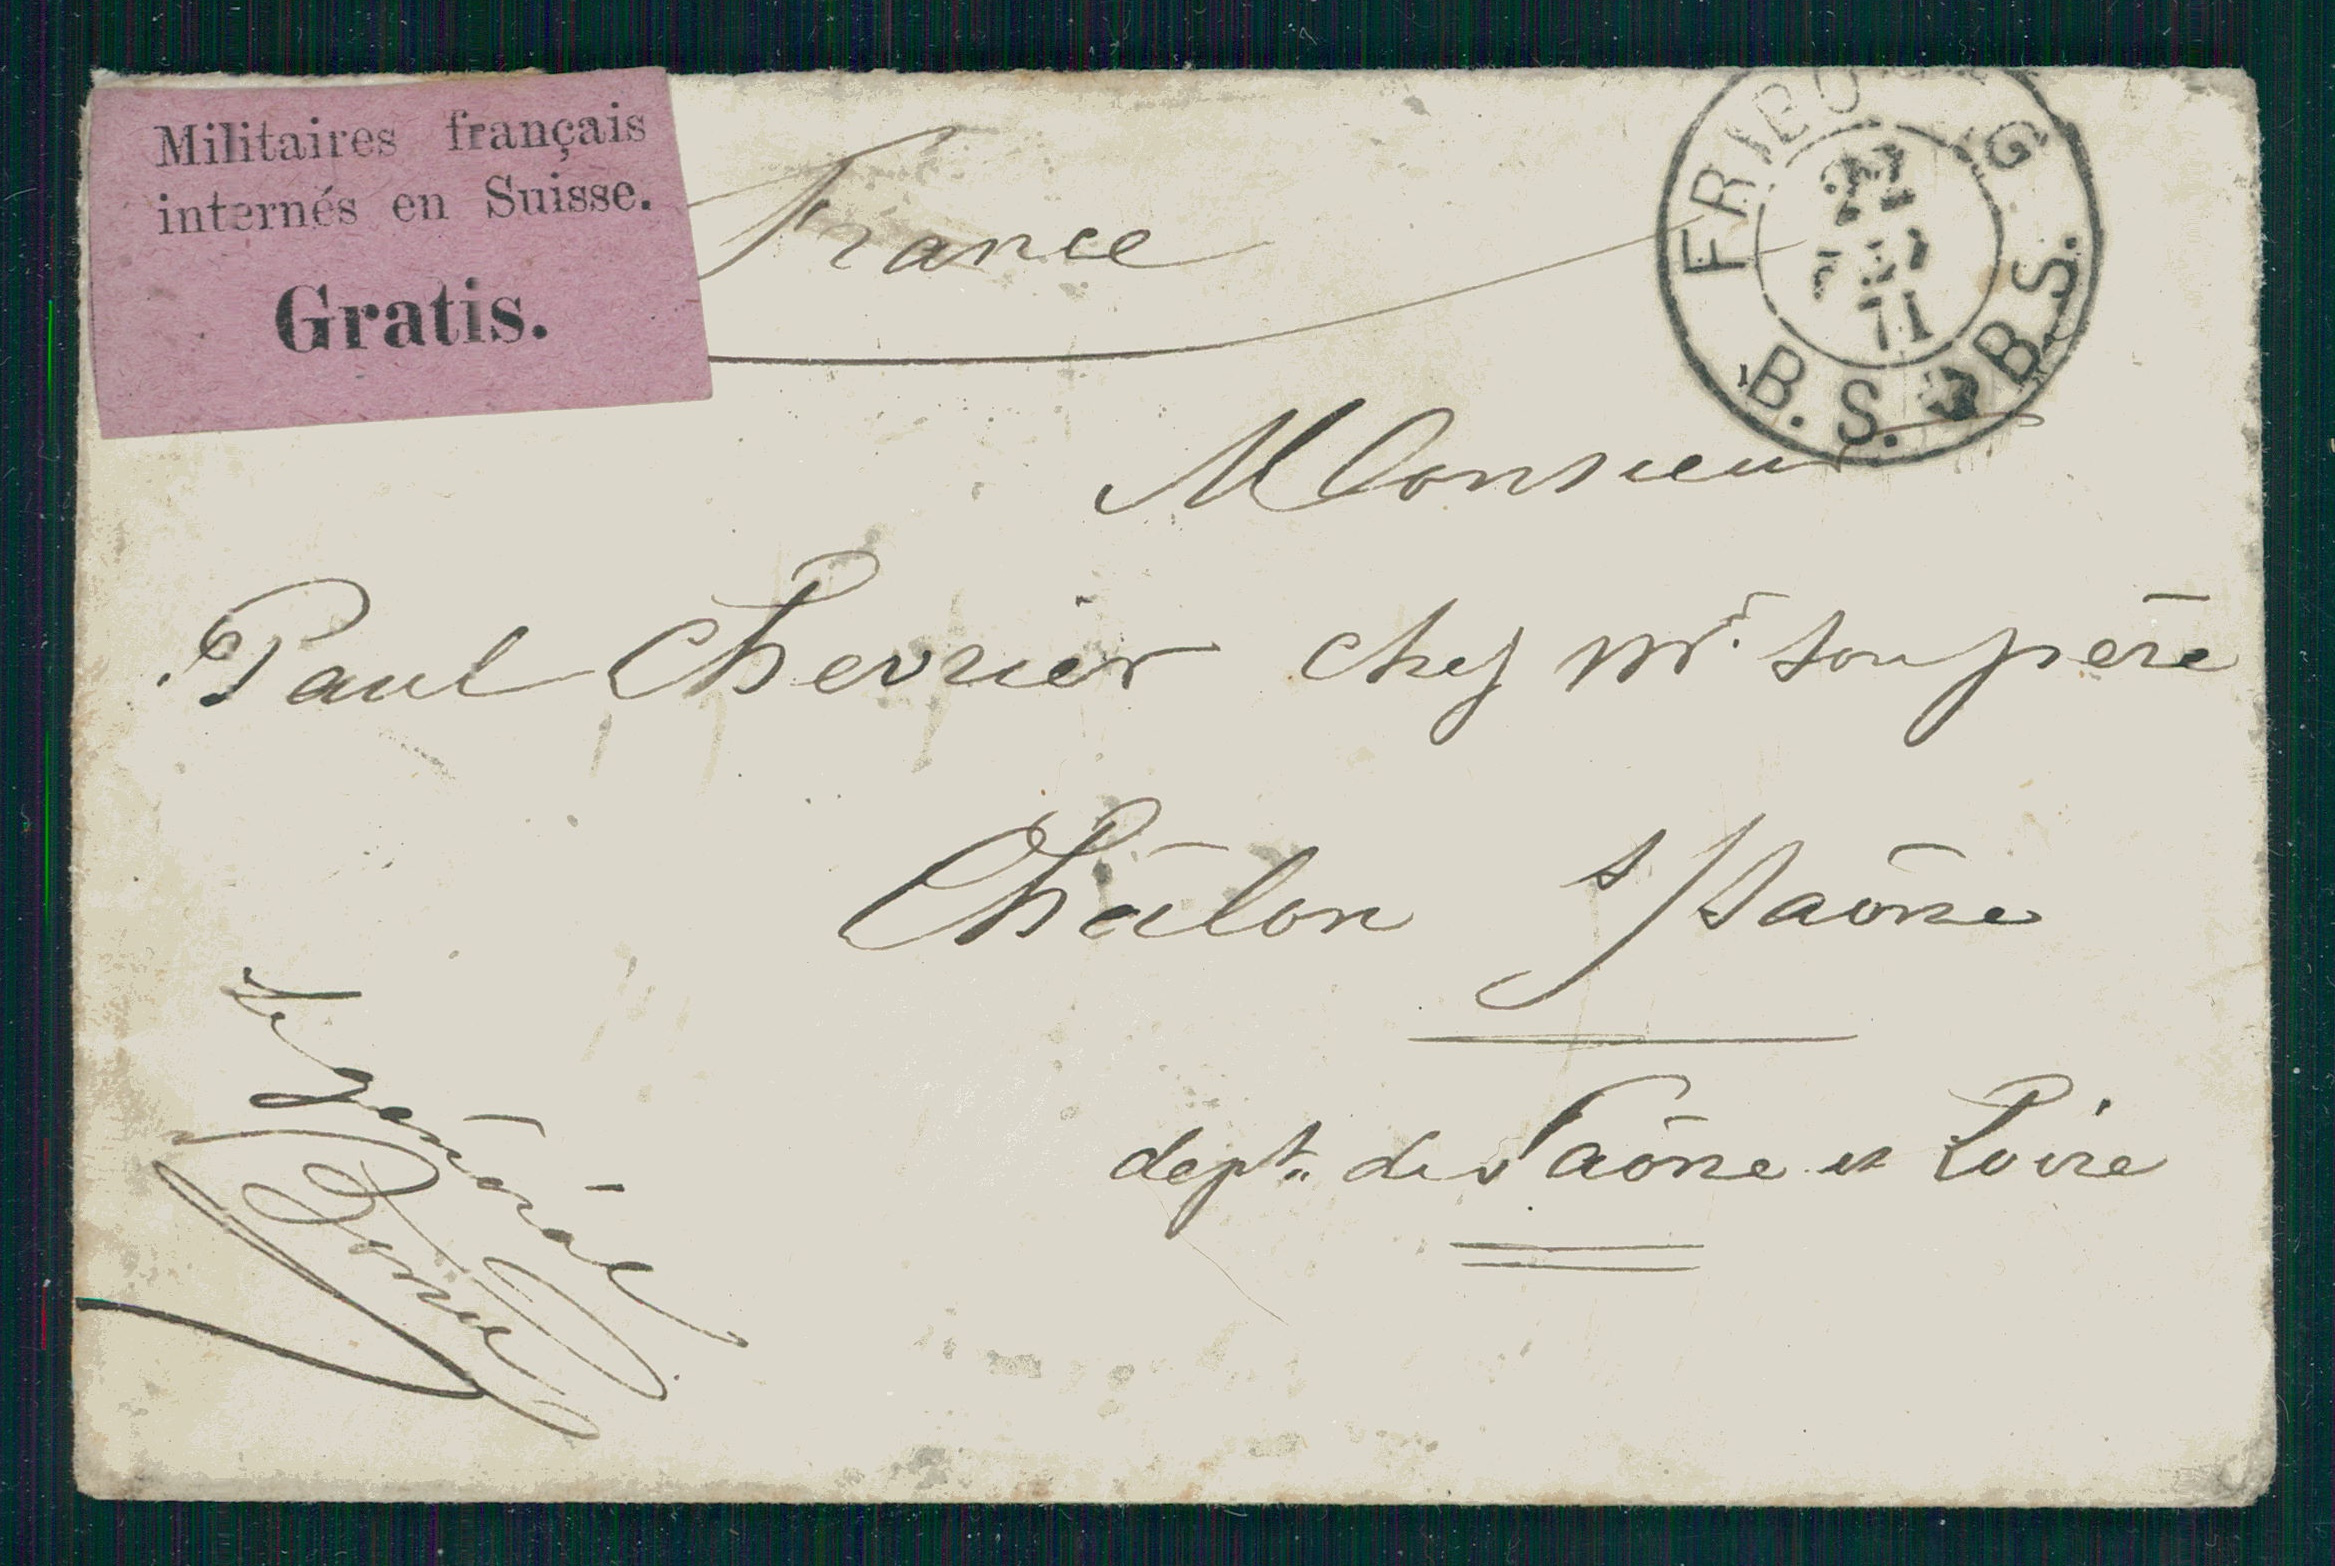 Militaires français
internés en Suisse.
Gratis.
France
FRIBOURG
71
B. S. B. S.
Monsieur
Paul Chevrier chez Mr. son père
Châlon s/Saône
dept. de Saône et Loire
le général